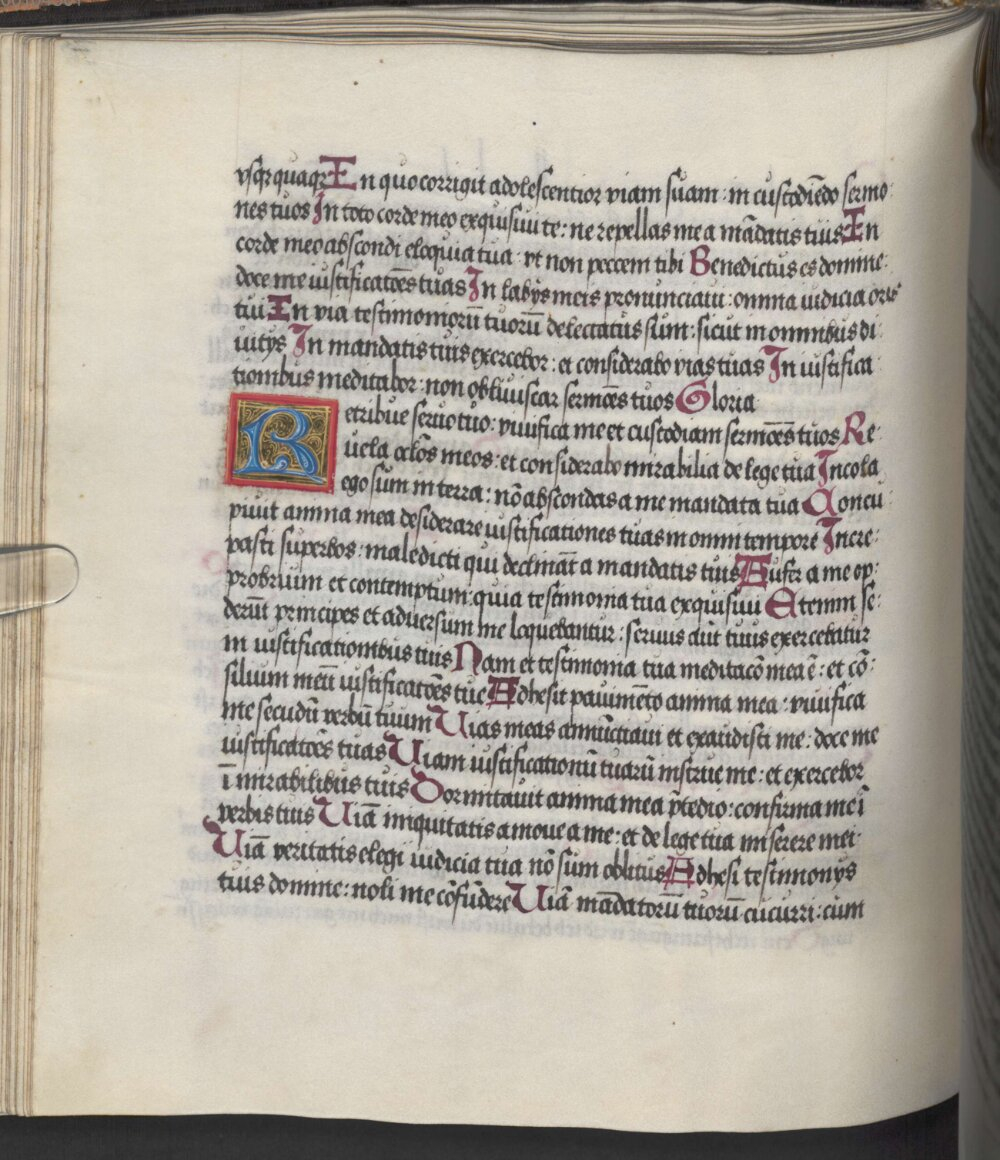 vsqꝫquaqꝫ In quo corrigit adolescentior viam suam : in custodiēdo sermo
nes tuos In toto corde meo exquisiui te : ne repellas me a mādatis tuis In
corde meo abscondi eloquia tua : vt non peccem tibi Benedictus es domine :
doce me iustificatōes tuas In labijs meis pronunciaui : omnia iudicia oris
tui In via testimoniorū tuorū delectatus sum : sicut in omnibus di
uitijs In mandatis tuis exercebor : et considerabo vias tuas In iustifica
tionibus meditabor : non obliuiscar sermōes tuos Gloria
Retribue seruo tuo : viuifica me et custodiam sermōes tuos Re
uela oclos meos : et considerabo mirabilia de lege tua Incola
ego sum in terra : nō abscondas a me mandata tua Concu
piuit anima mea desiderare iustificationes tuas in omni tempore Incre
pasti superbos : maledicti qui declināt a mandatis tuis Aufer a me op
probrium et contemptum : quia testimonia tua exquisiui Etenim se
derūt principes et aduersum me loquebantur : seruus aut tuus exercebatur
in iustificationibus tuis Nam et testimonia tua meditacō mea ē : et cō
silium meū iustificatōes tue Adhesit pauimēto anima mea : viuifica
me secūdū verbū tuum Uias meas annūciaui et exaudisti me : doce me
iustificatōes tuas Uiam iustificationū tuarū instrue me : et exercebor
ī mirabilibus tuis Dormitauit anima mea p̄ tedio : confirma me ī
verbis tuis Uiā iniquitatis amoue a me : et de lege tua miserere mei
Uiā veritatis elegi iudicia tua nō sum oblitus Adhesi testimonijs
tuis domine : noli me cōfūdere Uiā mādatorū tuorū cucurri : cum